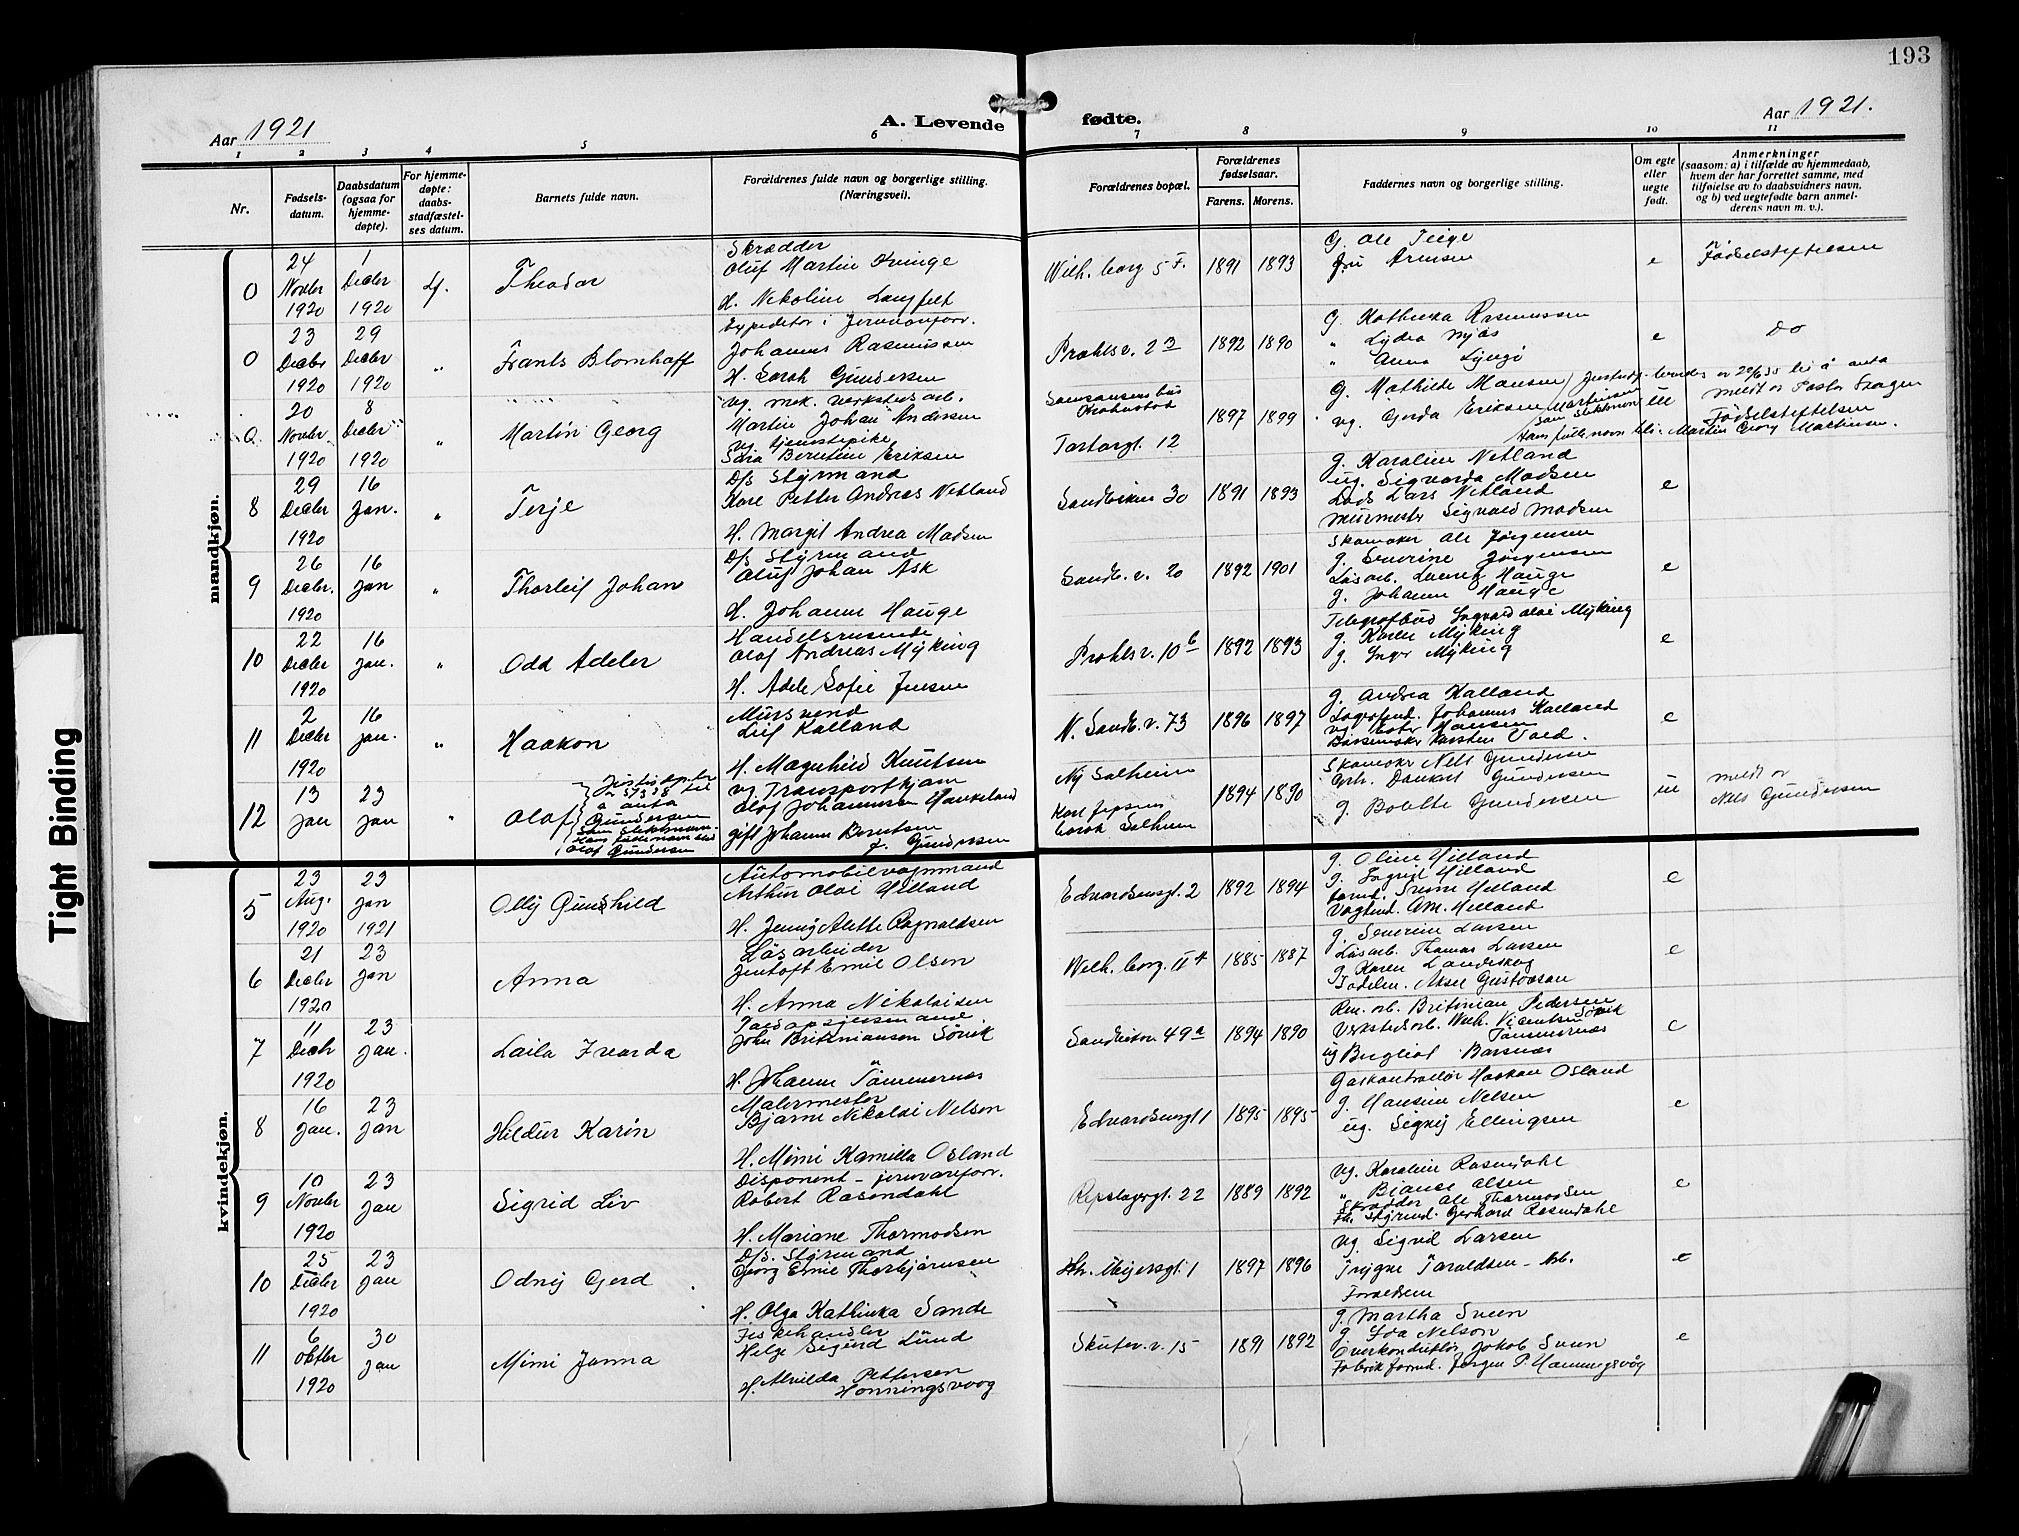 193
Aar 1921
A. Levende fødte.
Aar 1921.
1 2 3 4 5 6 7 8 9 10 11
Nr.
Fødsels-
datum.
Daabsdatum
(ogsaa for
hjemme-
døpte).
For hjemme-
døpte:
daabs-
stadfæstel-
ses datum.
Barnets fulde navn.
Forældrenes fulde navn og borgerlige stilling.
(Næringsvei).
Forældrenes bopæl.
Forældrenes
fødselsaar.
Farens. Morens.
Faddernes navn og borgerlige stilling.
Om egte
eller
uegte
født.
Anmerkninger
(saasom: a) i tilfælde av hjemmedaab,
hvem der har forrettet samme, med
tilføielse av to daabsvidners navn,
og b) ved uegtefødte barn anmel-
derens navn m. v.).
mandkjøn.
0
24 Novbr 1920
1 Decbr 1920
Theodor
Skrædder
Oluf Martin Kvinge
H. Nikoline Langfelt
Wilh. borg 5 F.
1891 1893
G. Ole Teige
e
Fødselstiftelsen
0
23 Decbr 1920
29 Decbr 1920
"
Frants Blomhoff
Expeditør i Jernvareforr.
Johannes Rasmussen
H. Sarah Gundersen
Prahlsv. 23
1892 1890
G. Kathinka Rasmussen
" Lydia Myås
" Anna Lyngø
e
Do
0
20 Novbr 1920
8 Decbr 1920
"
Martin Georg
ug. mek. verkstedsarb.
Martin Johan Andersen
ug tjenestepike
Sara Berntine Eriksen
Tartargt. 12
1897 1899
G. Mathilde Hansen
ug. Gerda Eriksen
ue
meldt av Pastor Fragen
Fødselstiftelsen
Hans fulle navn bli: Martin Georg Martinsen.
8
29 Decbr 1920
16 Jan.
"
Terje
D/s Styrmand
Kare Petter Andreas Netland
H. Margit Andrea Madsen
Sandviken 30
1891 1893
g. Karoline Netland
ug. Sigvarda Madsen
Lods Lars Netland
Murmester Sigvald Madsen
e
9
26 Decbr. 1920
16 Jan
"
Thorleif Johan
D/s Styrmand
Oluf Johan Ask
H. Johanne Hauge
Sandv. v. 20
1892 1901
Skomaker Ole Jørgensen
g. Severine Jørgensen
Løsarb. Lauritz Hauge
g. Johanne Hauge
e
10
22 Decbr 1920
16 Jan.
"
Odd Adeler
Handelsreisende
Olaf Andreas Myking
H. Adele Sofie Jensen
Prahlsv. 10 b
1892 1893
Telegrafbud Ingvard Olai Myking
g. Karen Myking
g. Inger Myking
e
11
2 Decbr 1920
16 Jan.
"
Haakon
Mursvend
Leif Kalland
H. Magnhild Knutsen
N. Sandv. v. 73
1896 1897
g. Andrea Kalland
Lagerfmd. Johannes Kalland
ug. Ester Hansen
Bøssemaker Karsten Vold.
e
12
13 Jan
23 Jan
"
Olaf
Gundersen
Olaf Gundersen
ug Transportkjøm
Olaf Johannesen Haukeland
gift Johanne Berntsen
f. Gundersen
Ny Solheim
1894 1890
Skomaker Nils Gundersen
Arb. Dankert Gundersen
g. Bolette Gundersen
ue
meldt av
Nils Gundersen
kvindekjøn.
5
23 Aug. 1920
23 Jan 1921
Olly Gunhild
Automobilvognmand
Arthur Olai Hilland
H. Jenny Alette Ragnvaldsen
Edvardsensgt. 2
1892 1894
g. Oline Hilland
g. Ingrid Hilland
Vogtmd. A.M. Hilland
e
6
21 Decbr 1920
23 Jan
Anna
Løsarbeider
Jentoft Emil Olsen
H. Anna Nikolaisen
Wilh. borg. II 4
1885 1887
g. Severine Larsen
Løsarb. Thomas Larsen
g. Karen Landeskog
Fadelm. Aksel Gustavsen
e
7
11 Decbr 1920
23 Jan.
Laila Fredrikke
John Brithmansen Sørvik
H. Johanne Tømmernæs
Sandviken 49 a
1894 1890
Rm. arb. Britman Pedersen Sørvik
Verkstedsarb. Wilh. Vicentsen Tømmernæs
ug Bergliot Barsnæs
e
8
16 Jan.
23 Jan
Hildur Karin
Malermester
Bjarne Nikolai Nelson
H. Mimi Kamilla Osland
Edvardsensgt 1
1895 1895
Gaskontrollør Haakon Osland
g. Hansine Nelsen
ug. Signy Ellingsen
e
9
10 Novbr 1920
23 Jan
Sigrid Liv
Disponent - jernvareforr.
Robert Rosendahl
H. Mariane Thormodsen
Repslagergt. 22
1889 1892
ug. Karoline Rosendahl
" Bianca Olsen
Skrædder Ole Thormodsen
Fh. Styrmd. Gerhard Rosendahl
e
10
25 Decbr 1920
23 Jan
Odny Gerd
D/s. Styrmand
Georg Emil Thorbjørnsen
H. Olga Kathinka Sande
Chr. Meyersgt. 1
1897 1896
ug. Sigrid Larsen
Trygve Taraldsen - Arb.
Forældrene
e
11
6 Oktbr 1920
30 Jan
Mimi Janna
Fiskehandler
Helge Sigurd Lund
H. Alvilda Pettersen
Honningsvoog
Skutev. v. 15
1891 1892
g. Martha Sveen
g. Ida Nelson
Overkonduktør Jakob Sveen
Fabrikformd. Jørgen P. Honningsvåg
e
Tight Binding